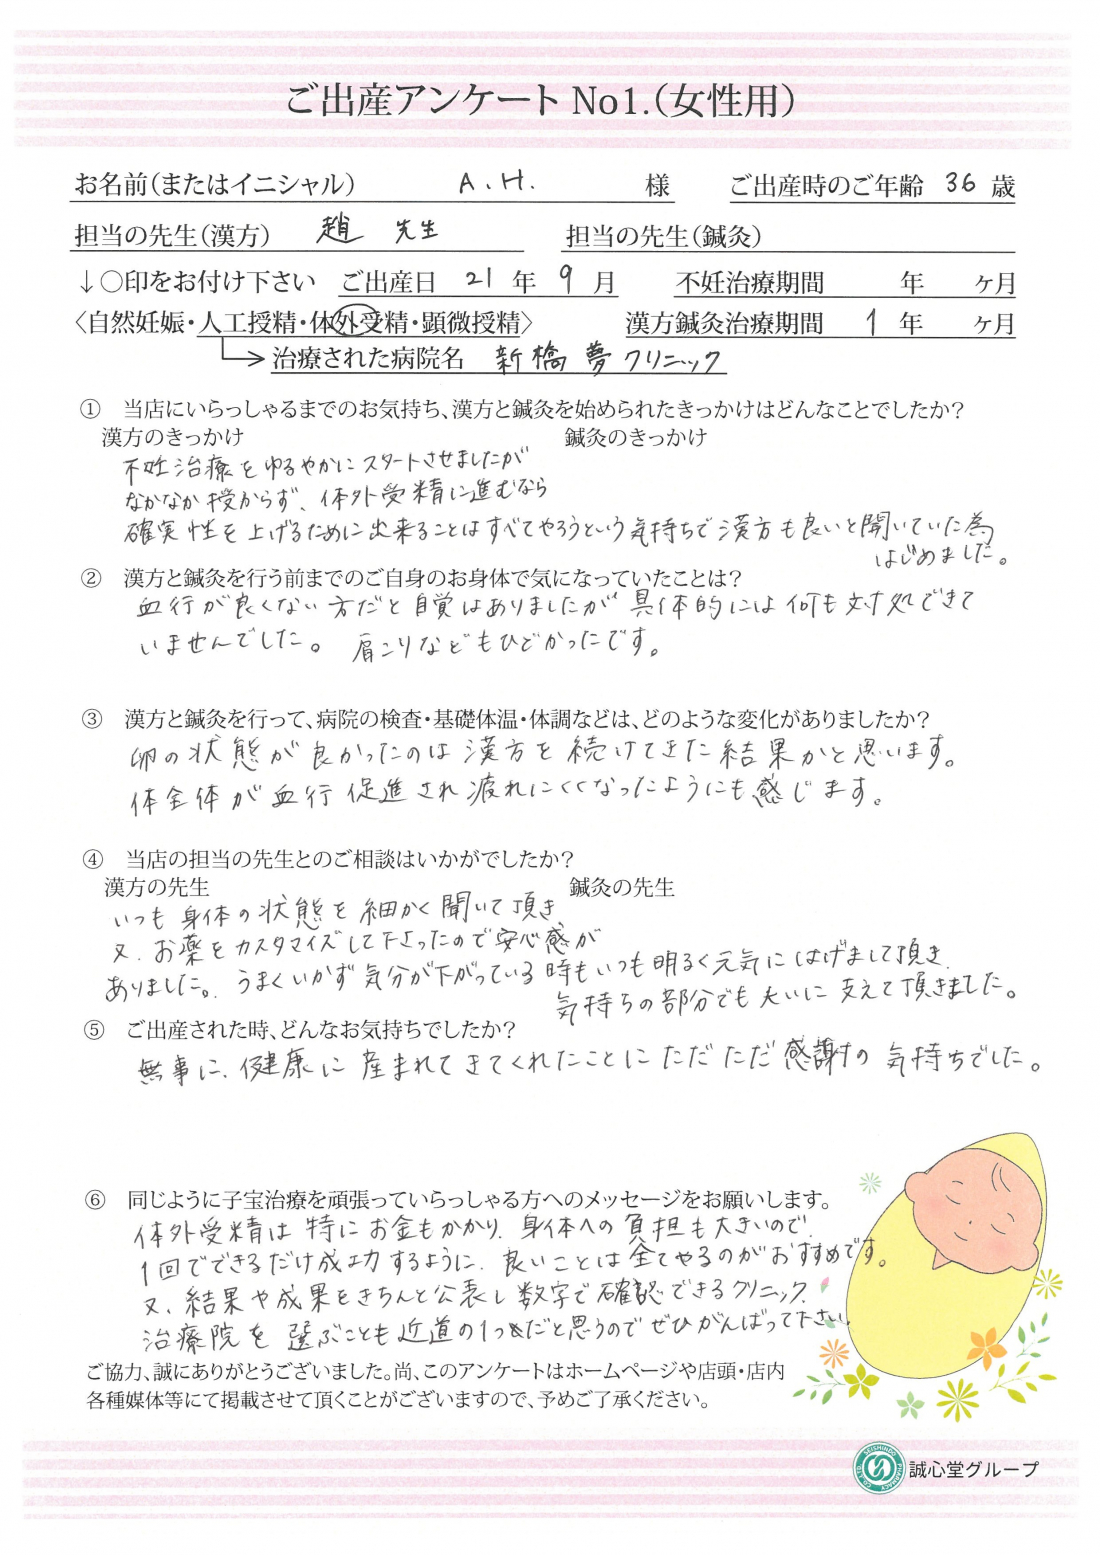 ご出産アンケート No1.（女性用）
お名前（またはイニシャル） A.H. 様 ご出産時のご年齢 36 歳
担当の先生（漢方） 趙 先生 担当の先生（鍼灸）
↓○印をお付け下さい ご出産日 21 年 9 月 不妊治療期間 年 ヶ月
〈自然妊娠・人工授精・体外受精・顕微授精〉 漢方鍼灸治療期間 1 年 ヶ月
治療された病院名 新橋夢クリニック
① 当店にいらっしゃるまでのお気持ち、漢方と鍼灸を始められたきっかけはどんなことでしたか？
漢方のきっかけ 鍼灸のきっかけ
不妊治療をゆるやかにスタートさせましたが
なかなか授からず、体外受精に進むなら
確実性を上げるために出来ることはすべてやろうという気持ちで漢方も良いと聞いていた為
はじめました。
② 漢方と鍼灸を行う前までのご自身のお身体で気になっていたことは？
血行が良くない方だと自覚はありましたが具体的には何も対処できて
いませんでした。 肩こりなどもひどかったです。
③ 漢方と鍼灸を行って、病院の検査・基礎体温・体調などは、どのような変化がありましたか？
卵の状態が良かったのは漢方を続けてきた結果かと思います。
体全体が血行促進され疲れにくくなったようにも感じます。
④ 当店の担当の先生とのご相談はいかがでしたか？
漢方の先生 鍼灸の先生
いつも身体の状態を細かく聞いて頂き
又、お薬をカスタマイズして下さったので安心感が
ありました。うまくいかず気分が下がっている時もいつも明るく元気にはげまして頂き、
気持ちの部分でも大いに支えて頂きました。
⑤ ご出産された時、どんなお気持ちでしたか？
無事に、健康に産まれてきてくれたことにただただ感謝の気持ちでした。
⑥ 同じように子宝治療を頑張っていらっしゃる方へのメッセージをお願いします。
体外受精は特にお金もかかり、身体への負担も大きいので、
1回でできるだけ成功するように、良いことは全てやるのがおすすめです。
又、結果や成果をきちんと公表し数字で確認できるクリニック、
治療院を選ぶことも近道の1つだと思うのでぜひがんばって下さい。
ご協力、誠にありがとうございました。尚、このアンケートはホームページや店頭・店内
各種媒体等にて掲載させて頂くことがございますので、予めご了承ください。
SEISHINDO PHARMACY CO.,LTD.
誠心堂グループ